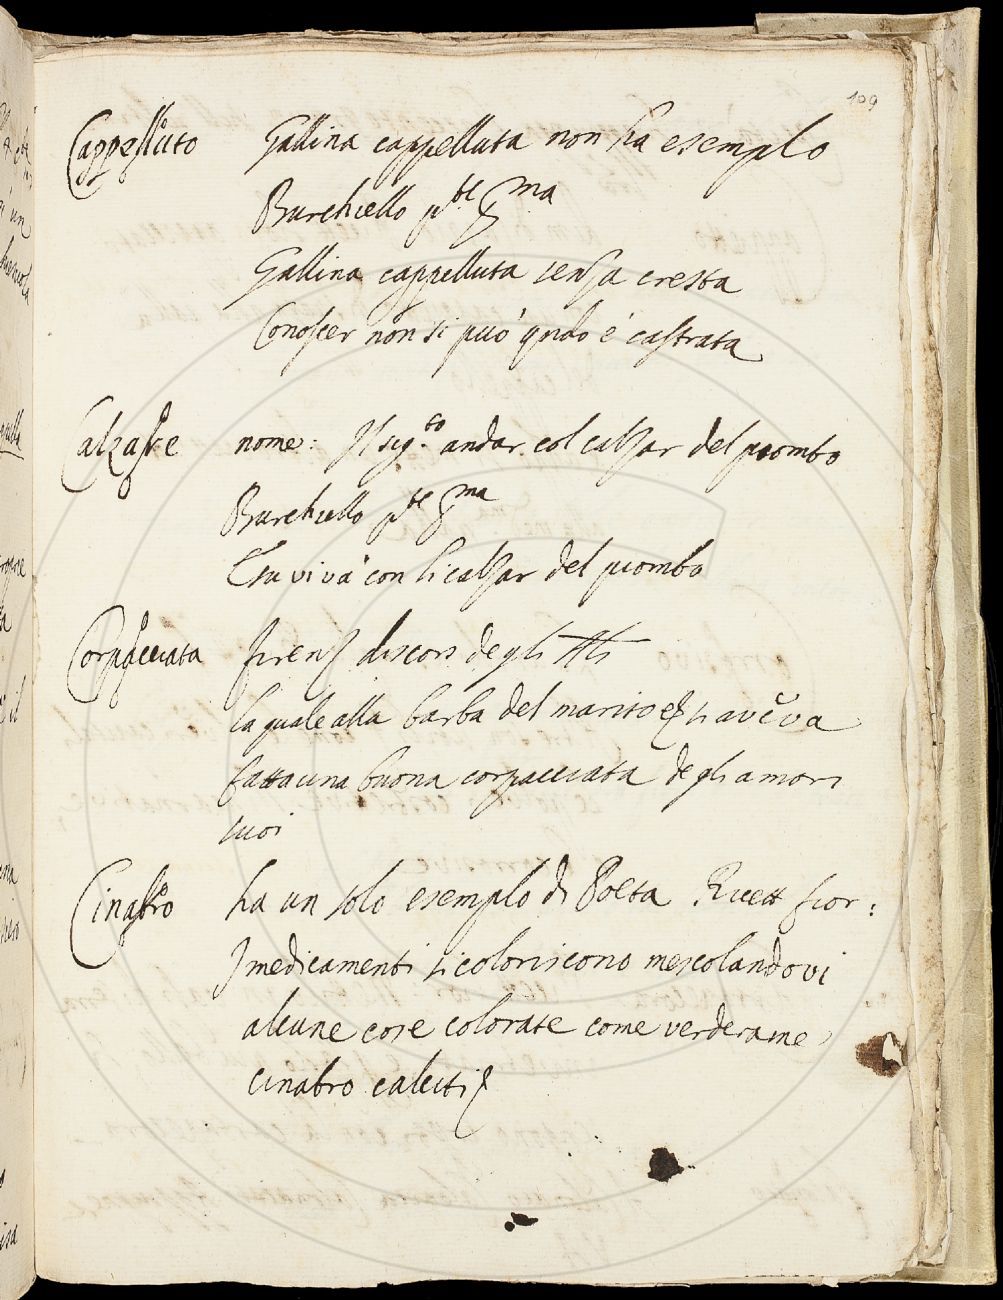 109
Cappelluto Gallina cappelluta non ha esempio
Burchiello pte pma
Gallina cappelluta senza cresta
Conoscer non si può qndo è castrata
Calzare nome: Il sig.to andar col calzar del piombo
Burchiello pte pma
Chi viva con li calzar del piombo
Corpacciata firenz discors degli
la quale alla barba del marito si aveva
fatta una buona corpacciata degli amori
suoi
Cinabro ha un solo esempio di Poeta. Ricett fior:
I medicamenti si coloriscono mescolandovi
alcune cose colorate come verderame
cinabro calciti